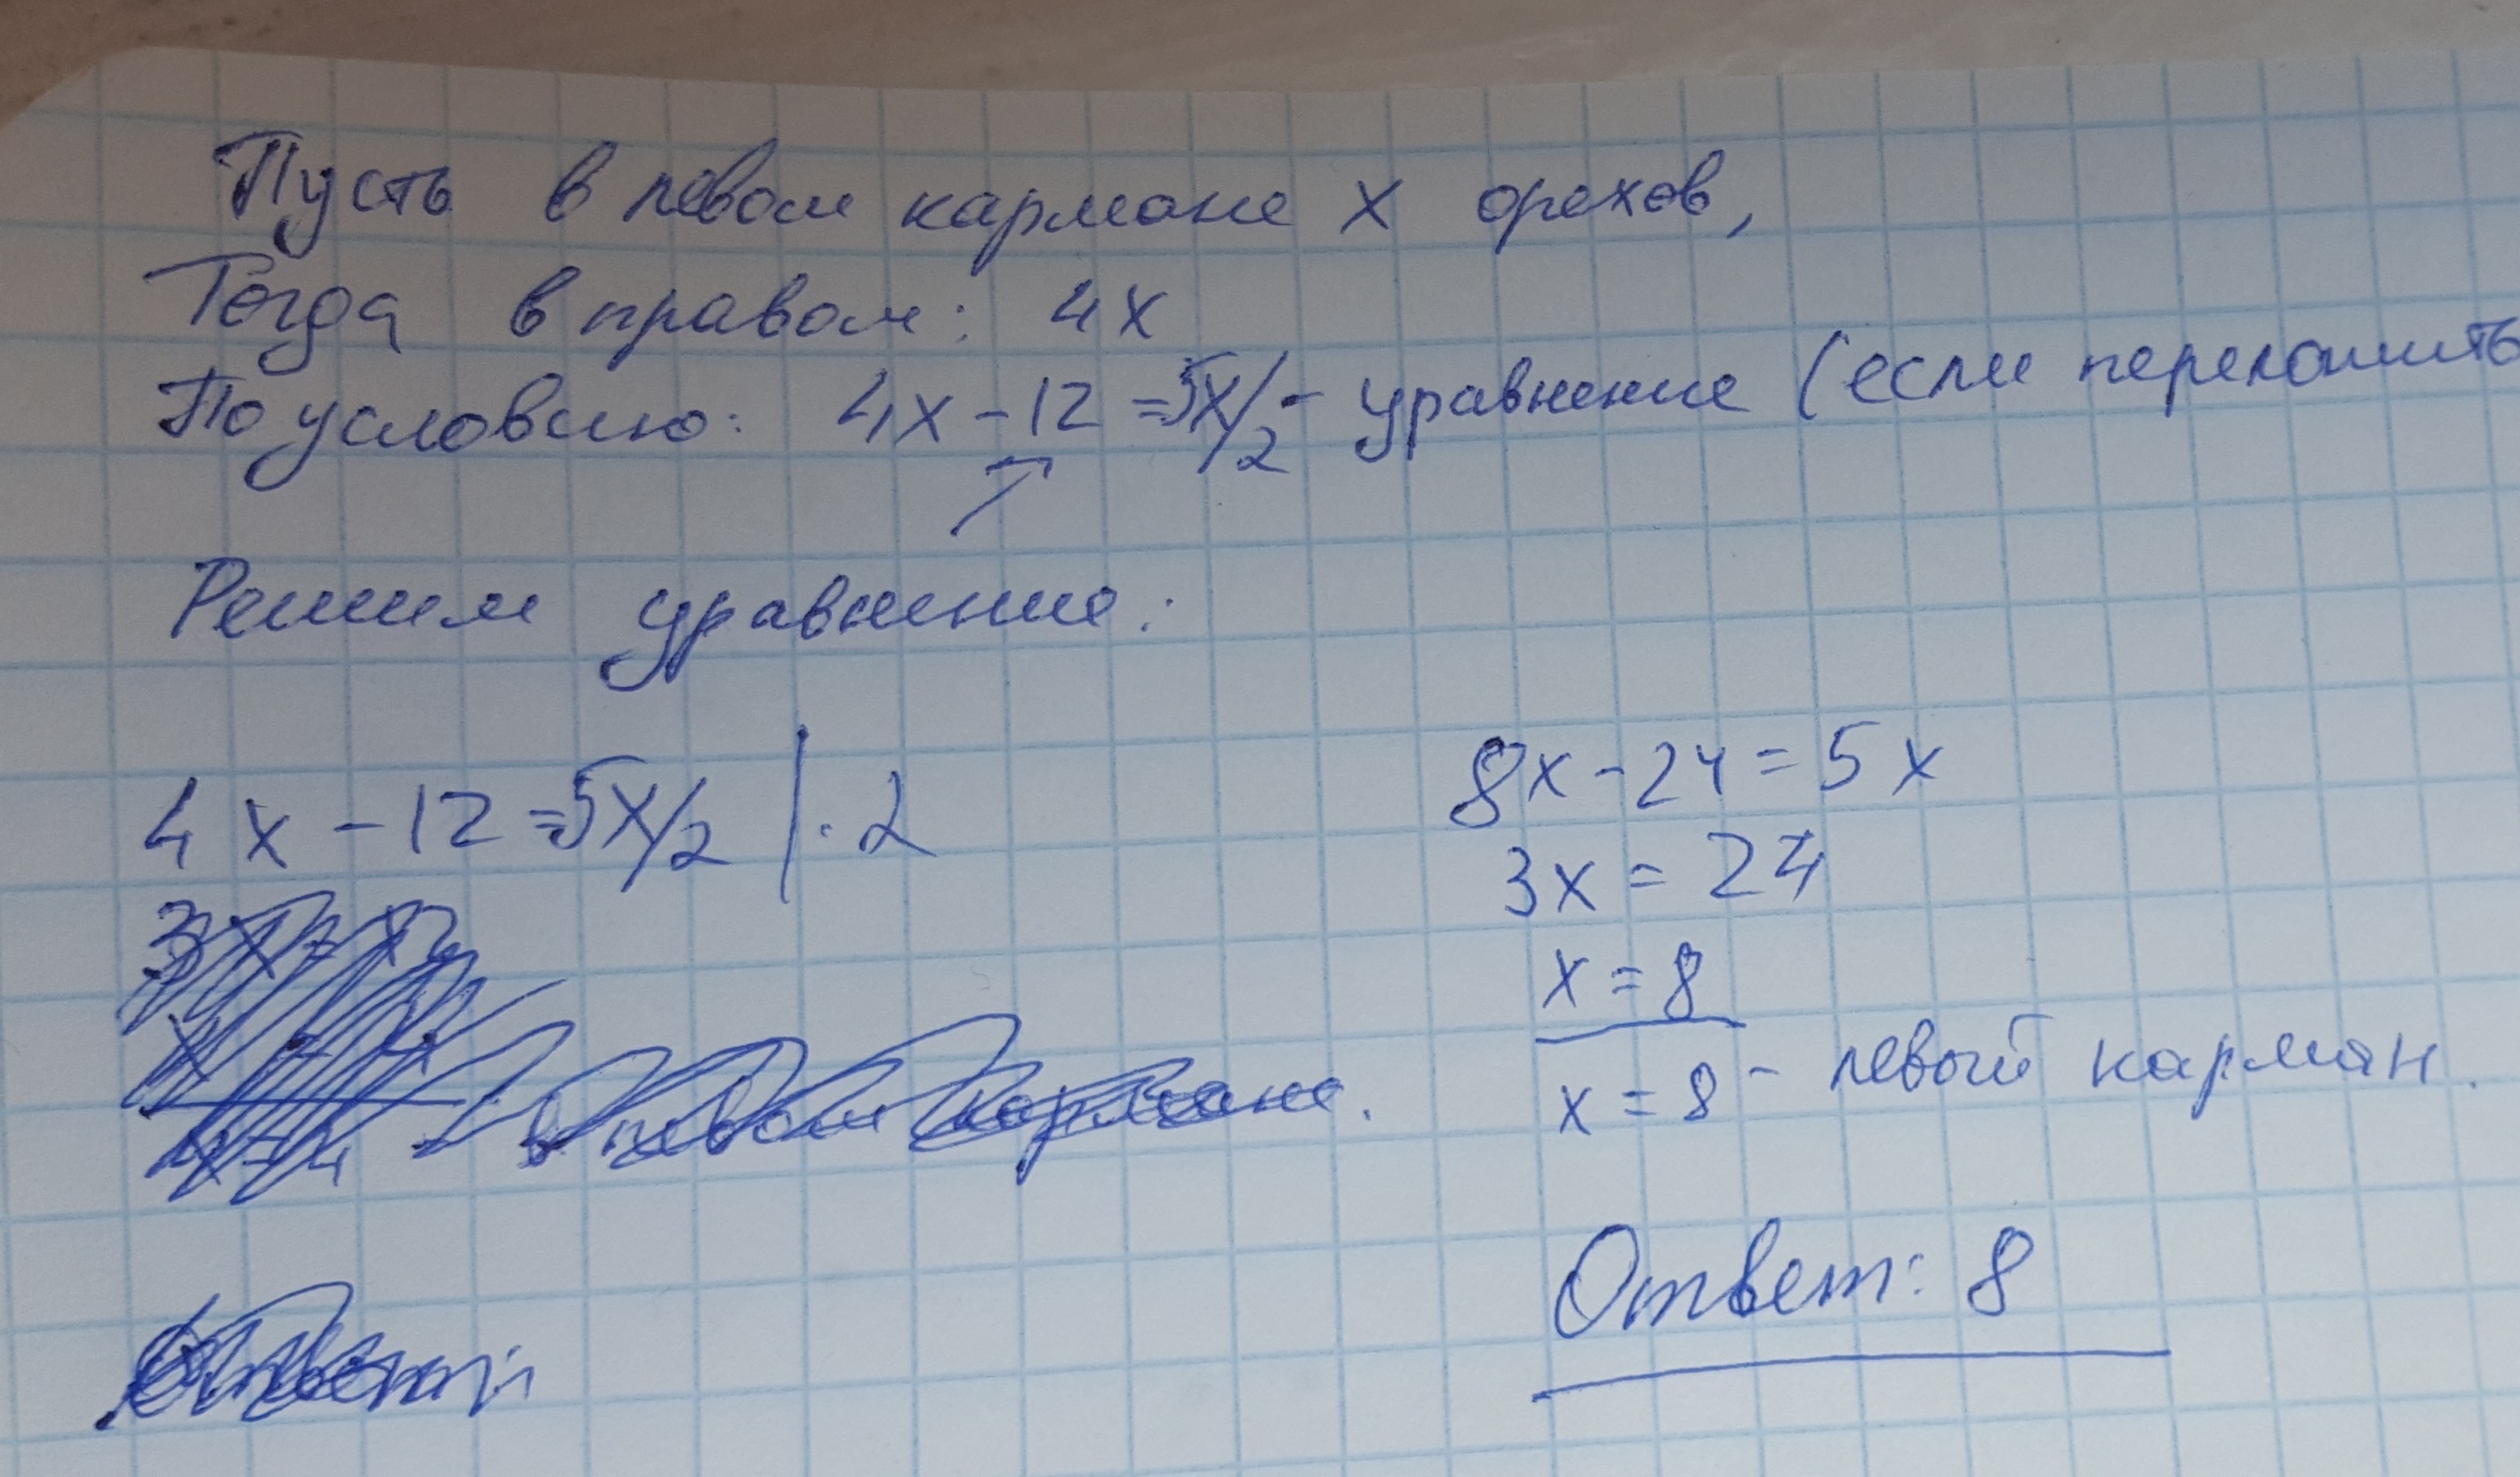 Пусть в левом кармане x орехов,
Тогда в правом: 4x
По условию: 4x - 12 = 5x/2 - уравнение (если переложить
Решим уравнение:
4x - 12 = 5x/2 | · 2
8x - 24 = 5x
3x = 24
x = 8
x = 8 - левый карман.
в левом кармане.
Ответ: 8
Ответ: